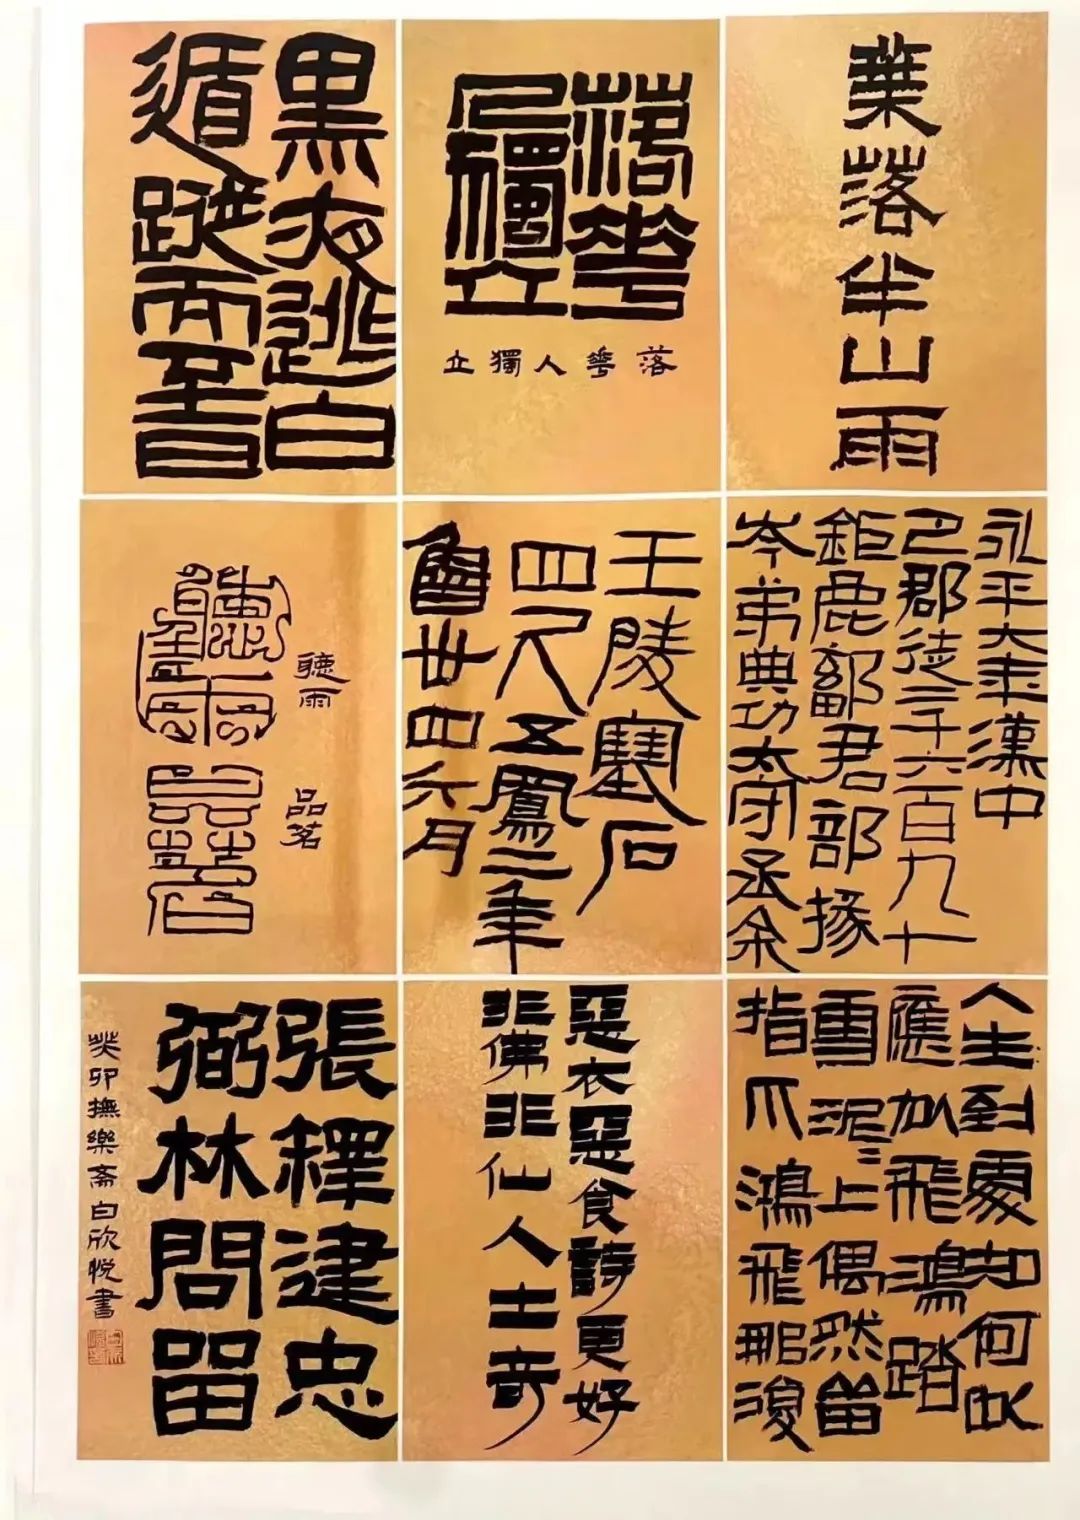 葉落半山雨
落華
人獨立
落華人獨立
黑夜逃白
遁蹤而至
永平六年漢中
巴郡徒二千六百九十
鉅鹿鄐君部掾
岑弟典功太守丞余
王陵塞石
四尺五鳳二年
魯卅四六月
聽雨
品茗
聽雨
品茗
人生到處知何似
應似飛鴻踏
雪泥〻上偶然留
指爪鴻飛那復
惡衣惡食詩更好
非佛非仙人出奇
張釋建忠
弼林問留
癸卯撫樂齋白欣悅書